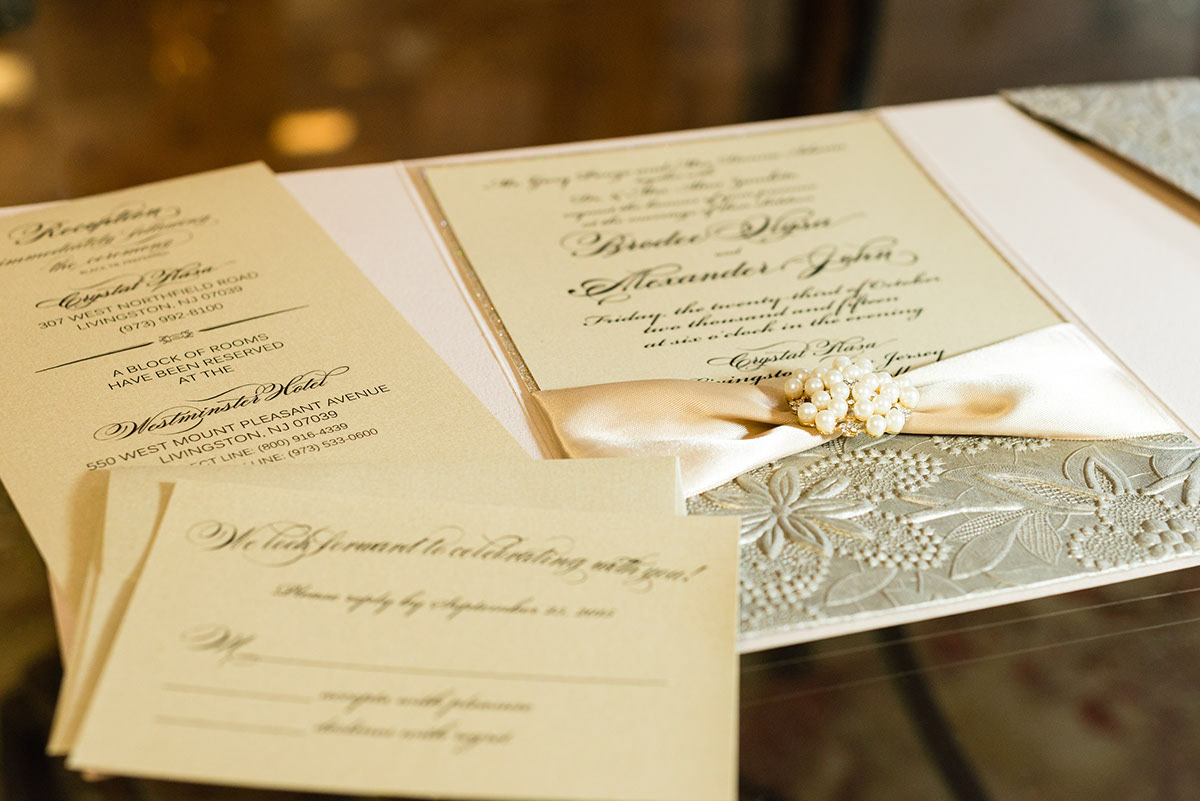 Reception
immediately following
the ceremony
Crystal Plaza
307 WEST NORTHFIELD ROAD
LIVINGSTON, NJ 07039
(973) 992-8100
A BLOCK OF ROOMS
HAVE BEEN RESERVED
AT THE
Westminster Hotel
550 WEST MOUNT PLEASANT AVENUE
LIVINGSTON, NJ 07039
ECT LINE: (800) 916-4339
LINE: (973) 533-0600
at the marriage of their children
Brodee
and
Alexander John
Friday, the twenty-third of October
two thousand and fifteen
at six o'clock in the evening
Crystal Plaza
Livingston Jersey
We look forward to celebrating with you!
Please reply by September
M
accepts with pleasure
declines with regret